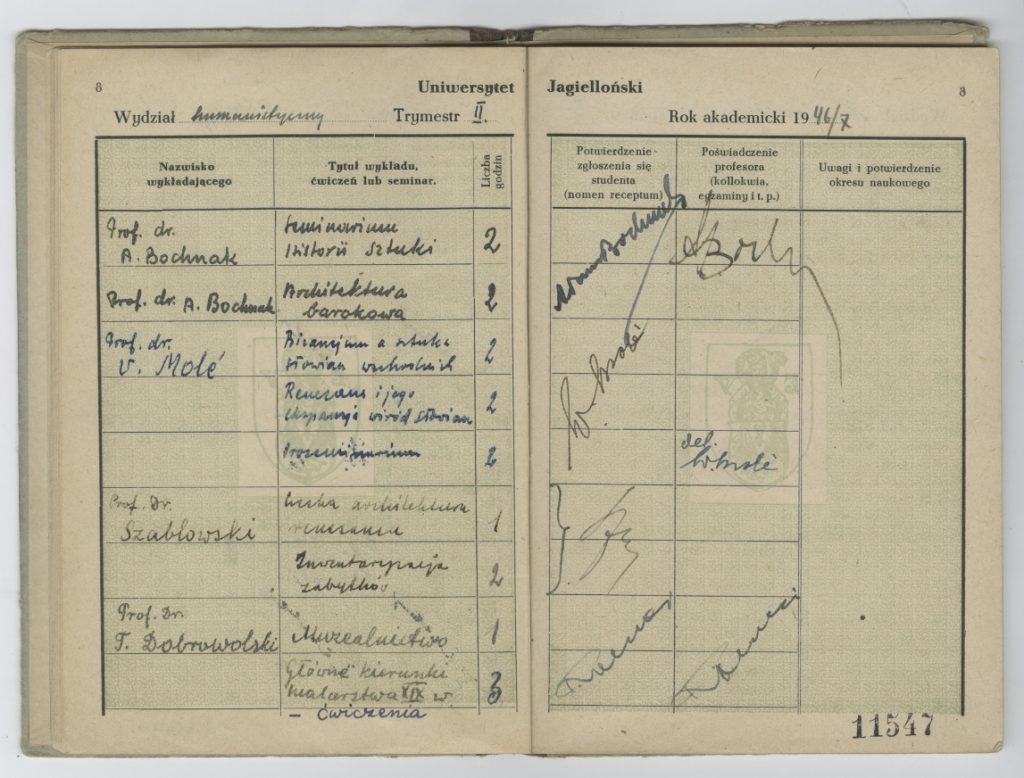 8
Uniwersytet Jagielloński
8
Wydział humanistyczny Trymestr II.
Rok akademicki 1946/7
Nazwisko
wykładającego
Tytuł wykładu,
ćwiczeń lub seminar.
Liczba
godzin
Potwierdzenie
zgłoszenia się
studenta
(nomen receptum)
Poświadczenie
profesora
(kollokwia,
egzaminy i t. p.)
Uwagi i potwierdzenie
okresu naukowego
Prof. dr.
A. Bochnak
Seminarium
Historii Sztuki
2
Adam Bochnak
Prof. dr. A. Bochnak
Architektura
barokowa
2
Prof. dr.
V. Molé
Bizancjum a sztuka
Słowian wschodnich
2
W. Molé
Renesans i jego
ekspansja wśród Słowian
2
Proseminarium
2
del.
W. Molé
Prof. Dr.
Szabłowski
architektura
renesansu
1
Inwentaryzacja
zabytków
2
Prof. Dr.
T. Dobrowolski
Muzealnictwo
1
Główne kierunki
malarstwa XIX w.
- ćwiczenia
3
11547